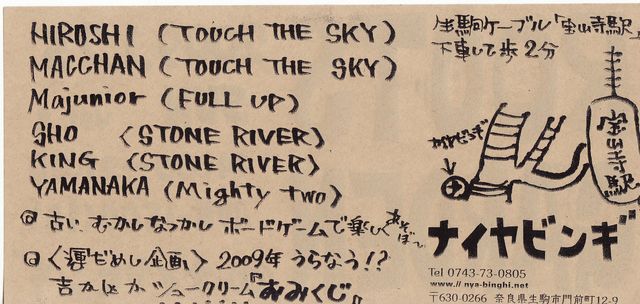 HIROSHI (TOUCH THE SKY)
MACCHAN (TOUCH THE SKY)
Majunior (FULL UP)
SHO (STONE RIVER)
KING (STONE RIVER)
YAMANAKA (Mighty two)
@ 古い、むかしなつかし ボードゲームで楽しく あそぼ〜
@ 〈運だめし企画〉 2009年 うらなう!?
吉か凶か シュークリーム『おみくじ』
生駒ケーブル「宝山寺駅」
下車して歩2分
ナイヤビンギ
宝山寺駅
ナイヤビンギ
Tel 0743-73-0805
www.// nya-binghi.net
〒630-0266 奈良県生駒市門前町12-9